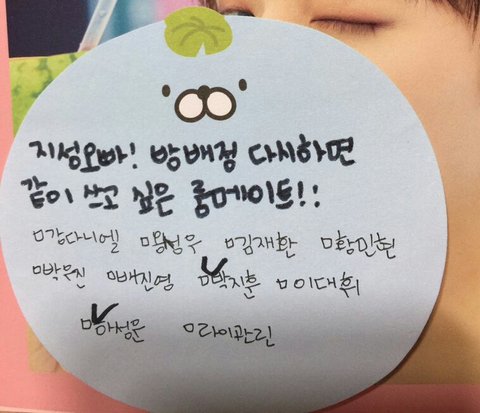 지성오빠! 방배정 다시하면
같이 쓰고 싶은 룸메이트!!
□강다니엘 □옹성우 □김재환 □황민현
□박우진 □배진영 □박지훈 □이대휘
□하성운 □라이관린